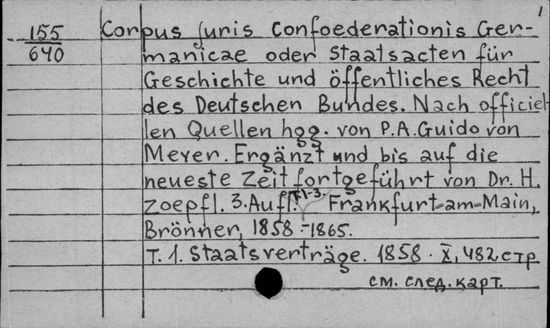 1
155
640
Corpus juris Confoederationis Ger-
manicae oder Staatsacten für
Geschichte und öffentliches Recht
des Deutschen Bundes. Nach officiel-
len Quellen hgg. von P.A. Guido von
Meyer. Ergänzt und bis auf die
neueste Zeit fortgeführt von Dr. H.
Zoepfl. 3. Aufl. T.1-3. Frankfurt-am-Main,
Brönner, 1858-1865.
T. 1. Staatsverträge. 1858. X, 482 стр
см. след. карт.